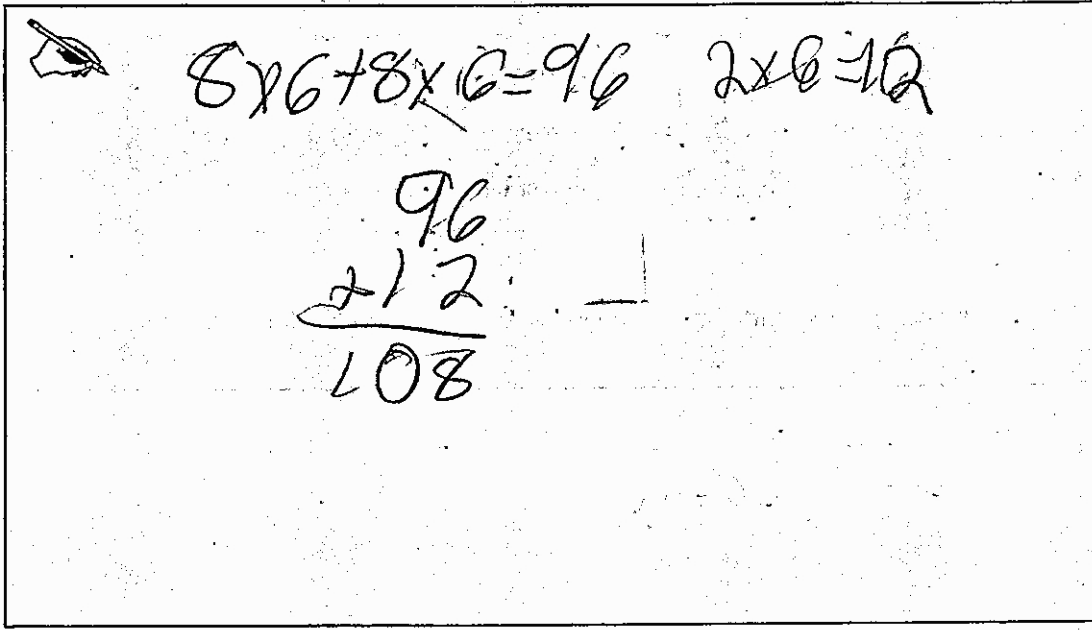 8x6+8x6=96 2x6=12
96
+12
108